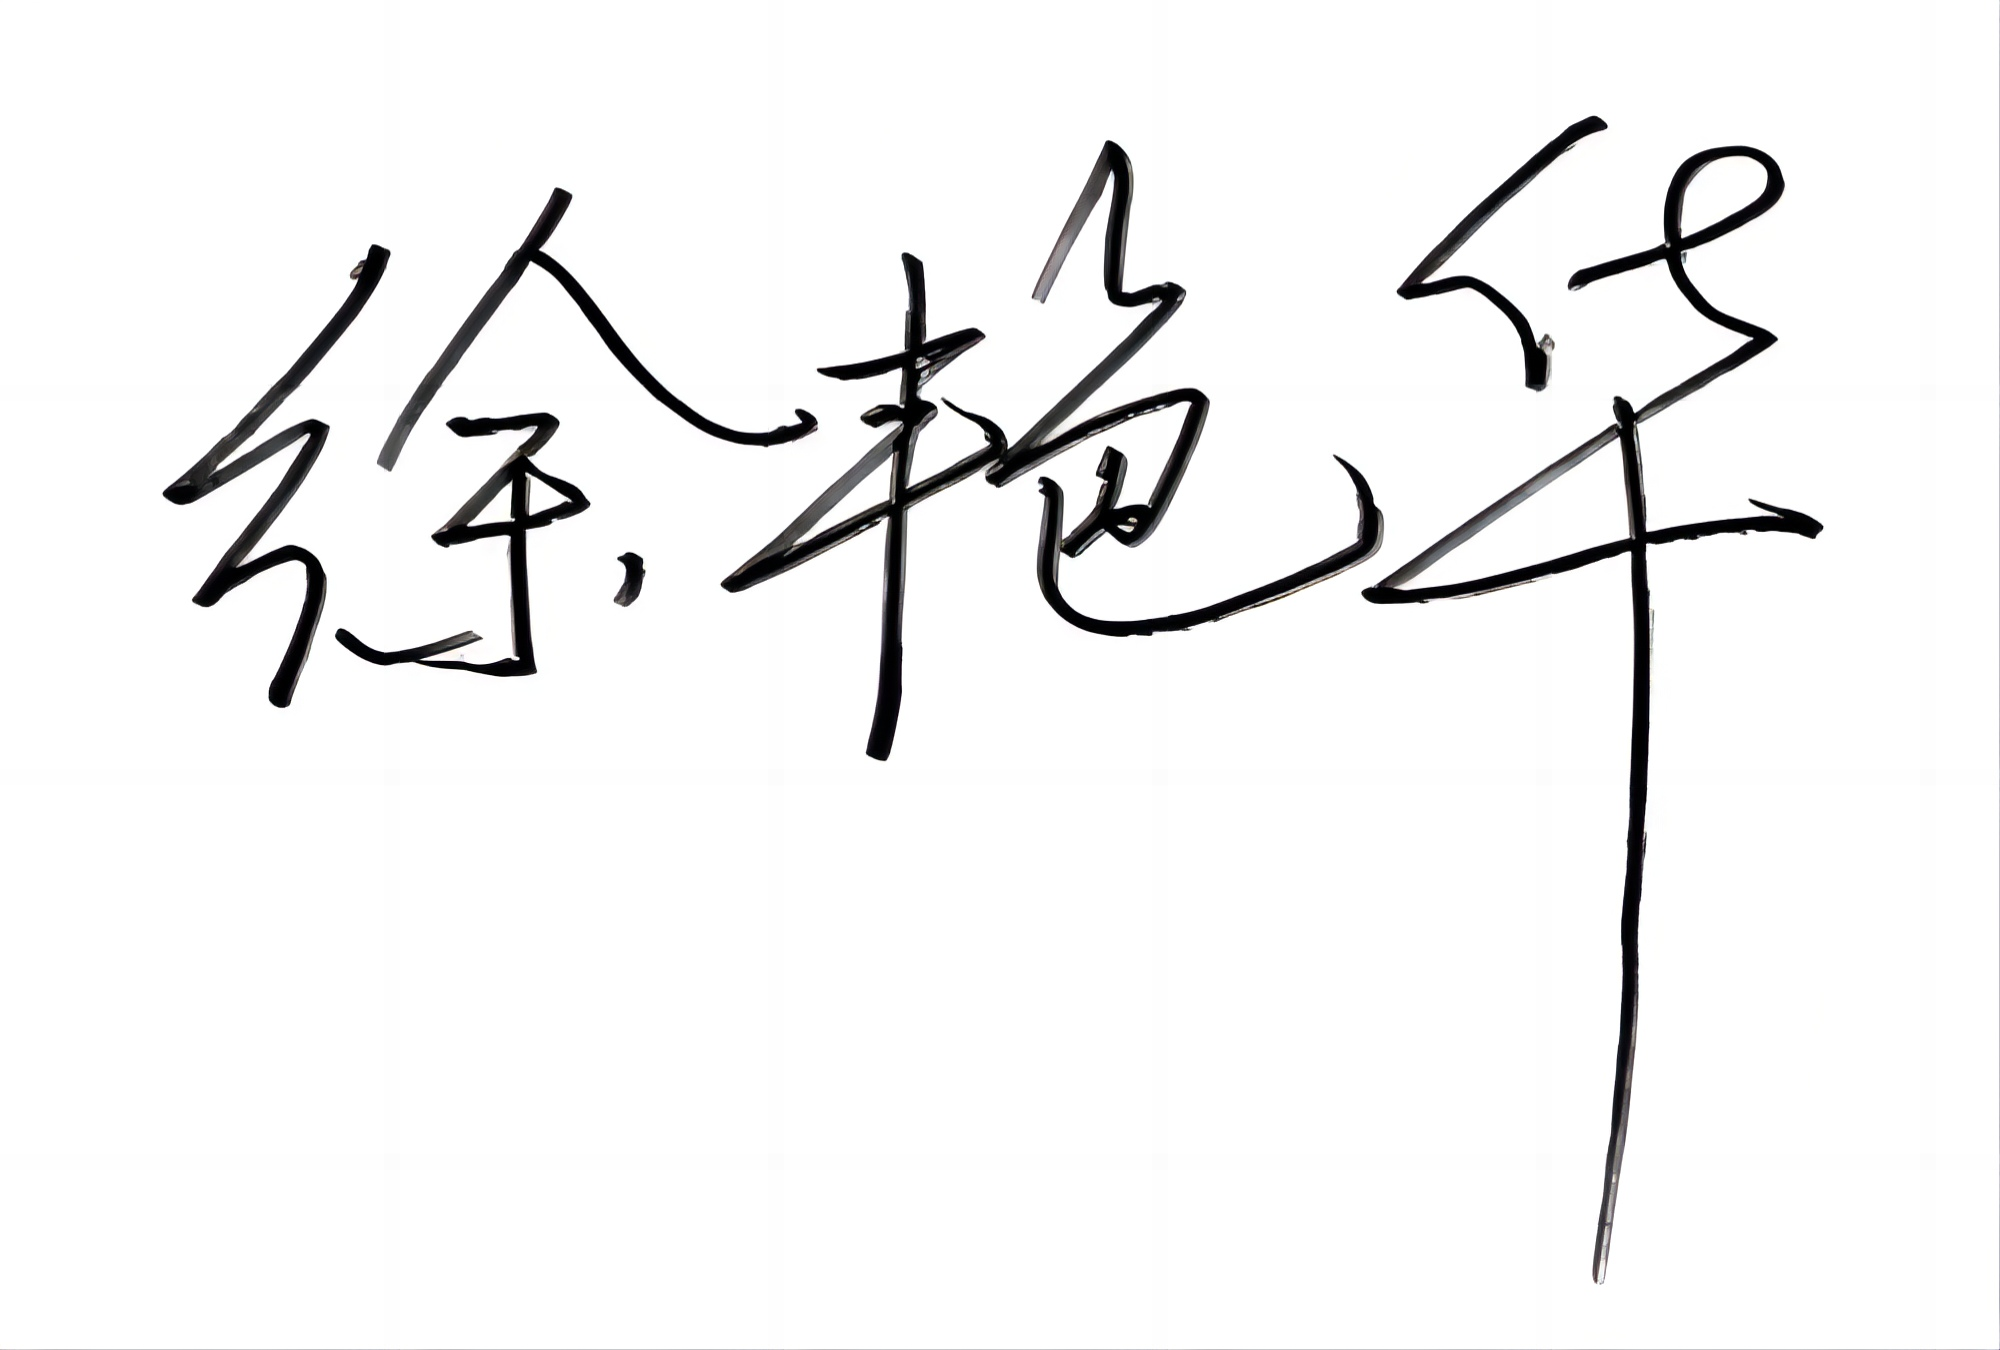 徐艳华